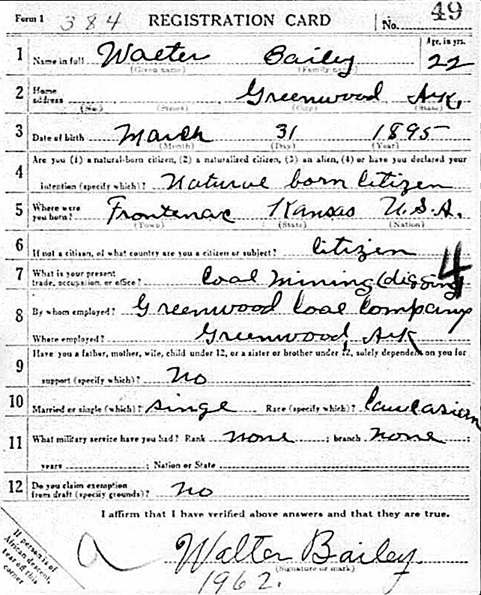 Form 1 384 REGISTRATION CARD No. 49
1 Name in full Walter Bailey Age, in yrs. 22
(Given name) (Family name)
2 Home address Greenwood Ark.
(No.) (Street) (City) (State)
3 Date of birth March 31 1895
(Month) (Day) (Year)
4 Are you (1) a natural-born citizen, (2) a naturalized citizen, (3) an alien, (4) or have you declared your
intention (specify which)? Natural born Citizen
5 Where were you born? Frontenac Kansas U.S.A.
(Town) (State) (Nation)
6 If not a citizen, of what country are you a citizen or subject? Citizen
7 What is your present trade, occupation, or office? Coal Mining (digging 4
8 By whom employed? Greenwood Coal Company
Where employed? Greenwood, Ark
9 Have you a father, mother, wife, child under 12, or a sister or brother under 12, solely dependent on you for
support (specify which)? No
10 Married or single (which)? Singe Race (specify which)? Caucasien
11 What military service have you had? Rank none ; branch none ;
years ; Nation or State
12 Do you claim exemption from draft (specify grounds)? No
I affirm that I have verified above answers and that they are true.
If person is of
African descent,
tear off this
corner
a Walter Bailey
(Signature or mark)
1962.